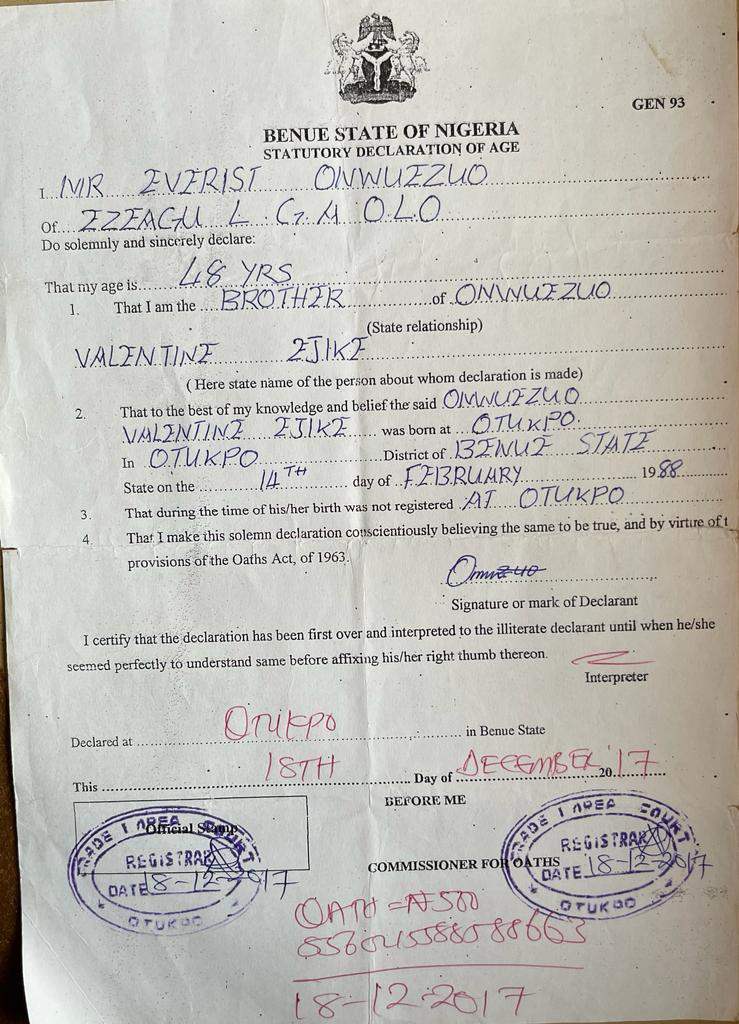 GEN 93
BENUE STATE OF NIGERIA
STATUTORY DECLARATION OF AGE
I MR EVERIST ONWUEZUO
Of EZEAGU L. G. A OLO
Do solemnly and sincerely declare:
That my age is 48 YRS
1. That I am the BROTHER of ONWUEZUO
(State relationship)
VALENTINE EJIKE
( Here state name of the person about whom declaration is made)
2. That to the best of my knowledge and belief the said ONWUEZUO
VALENTINE EJIKE was born at OTUKPO.
In OTUKPO District of BENUE STATE
State on the 14TH day of FEBRUARY 1988
3. That during the time of his/her birth was not registered AT OTUKPO
4. That I make this solemn declaration conscientiously believing the same to be true, and by virtire of t
provisions of the Oaths Act, of 1963.
Signature or mark of Declarant
I certify that the declaration has been first over and interpreted to the illiterate declarant until when he/she
seemed perfectly to understand same before affixing his/her right thumb thereon.
Interpreter
Declared at OTUKPO in Benue State
This 18TH Day of DECEMBER 2017
BEFORE ME
Official Stamp
GRADE I AREA COURT
REGISTRAR
DATE 18-12-2017
OTUKPO
COMMISSIONER FOR OATHS
GRADE I AREA COURT
REGISTRAR
DATE 18-12-2017
OTUKPO
OATH = ₦500
18-12-2017